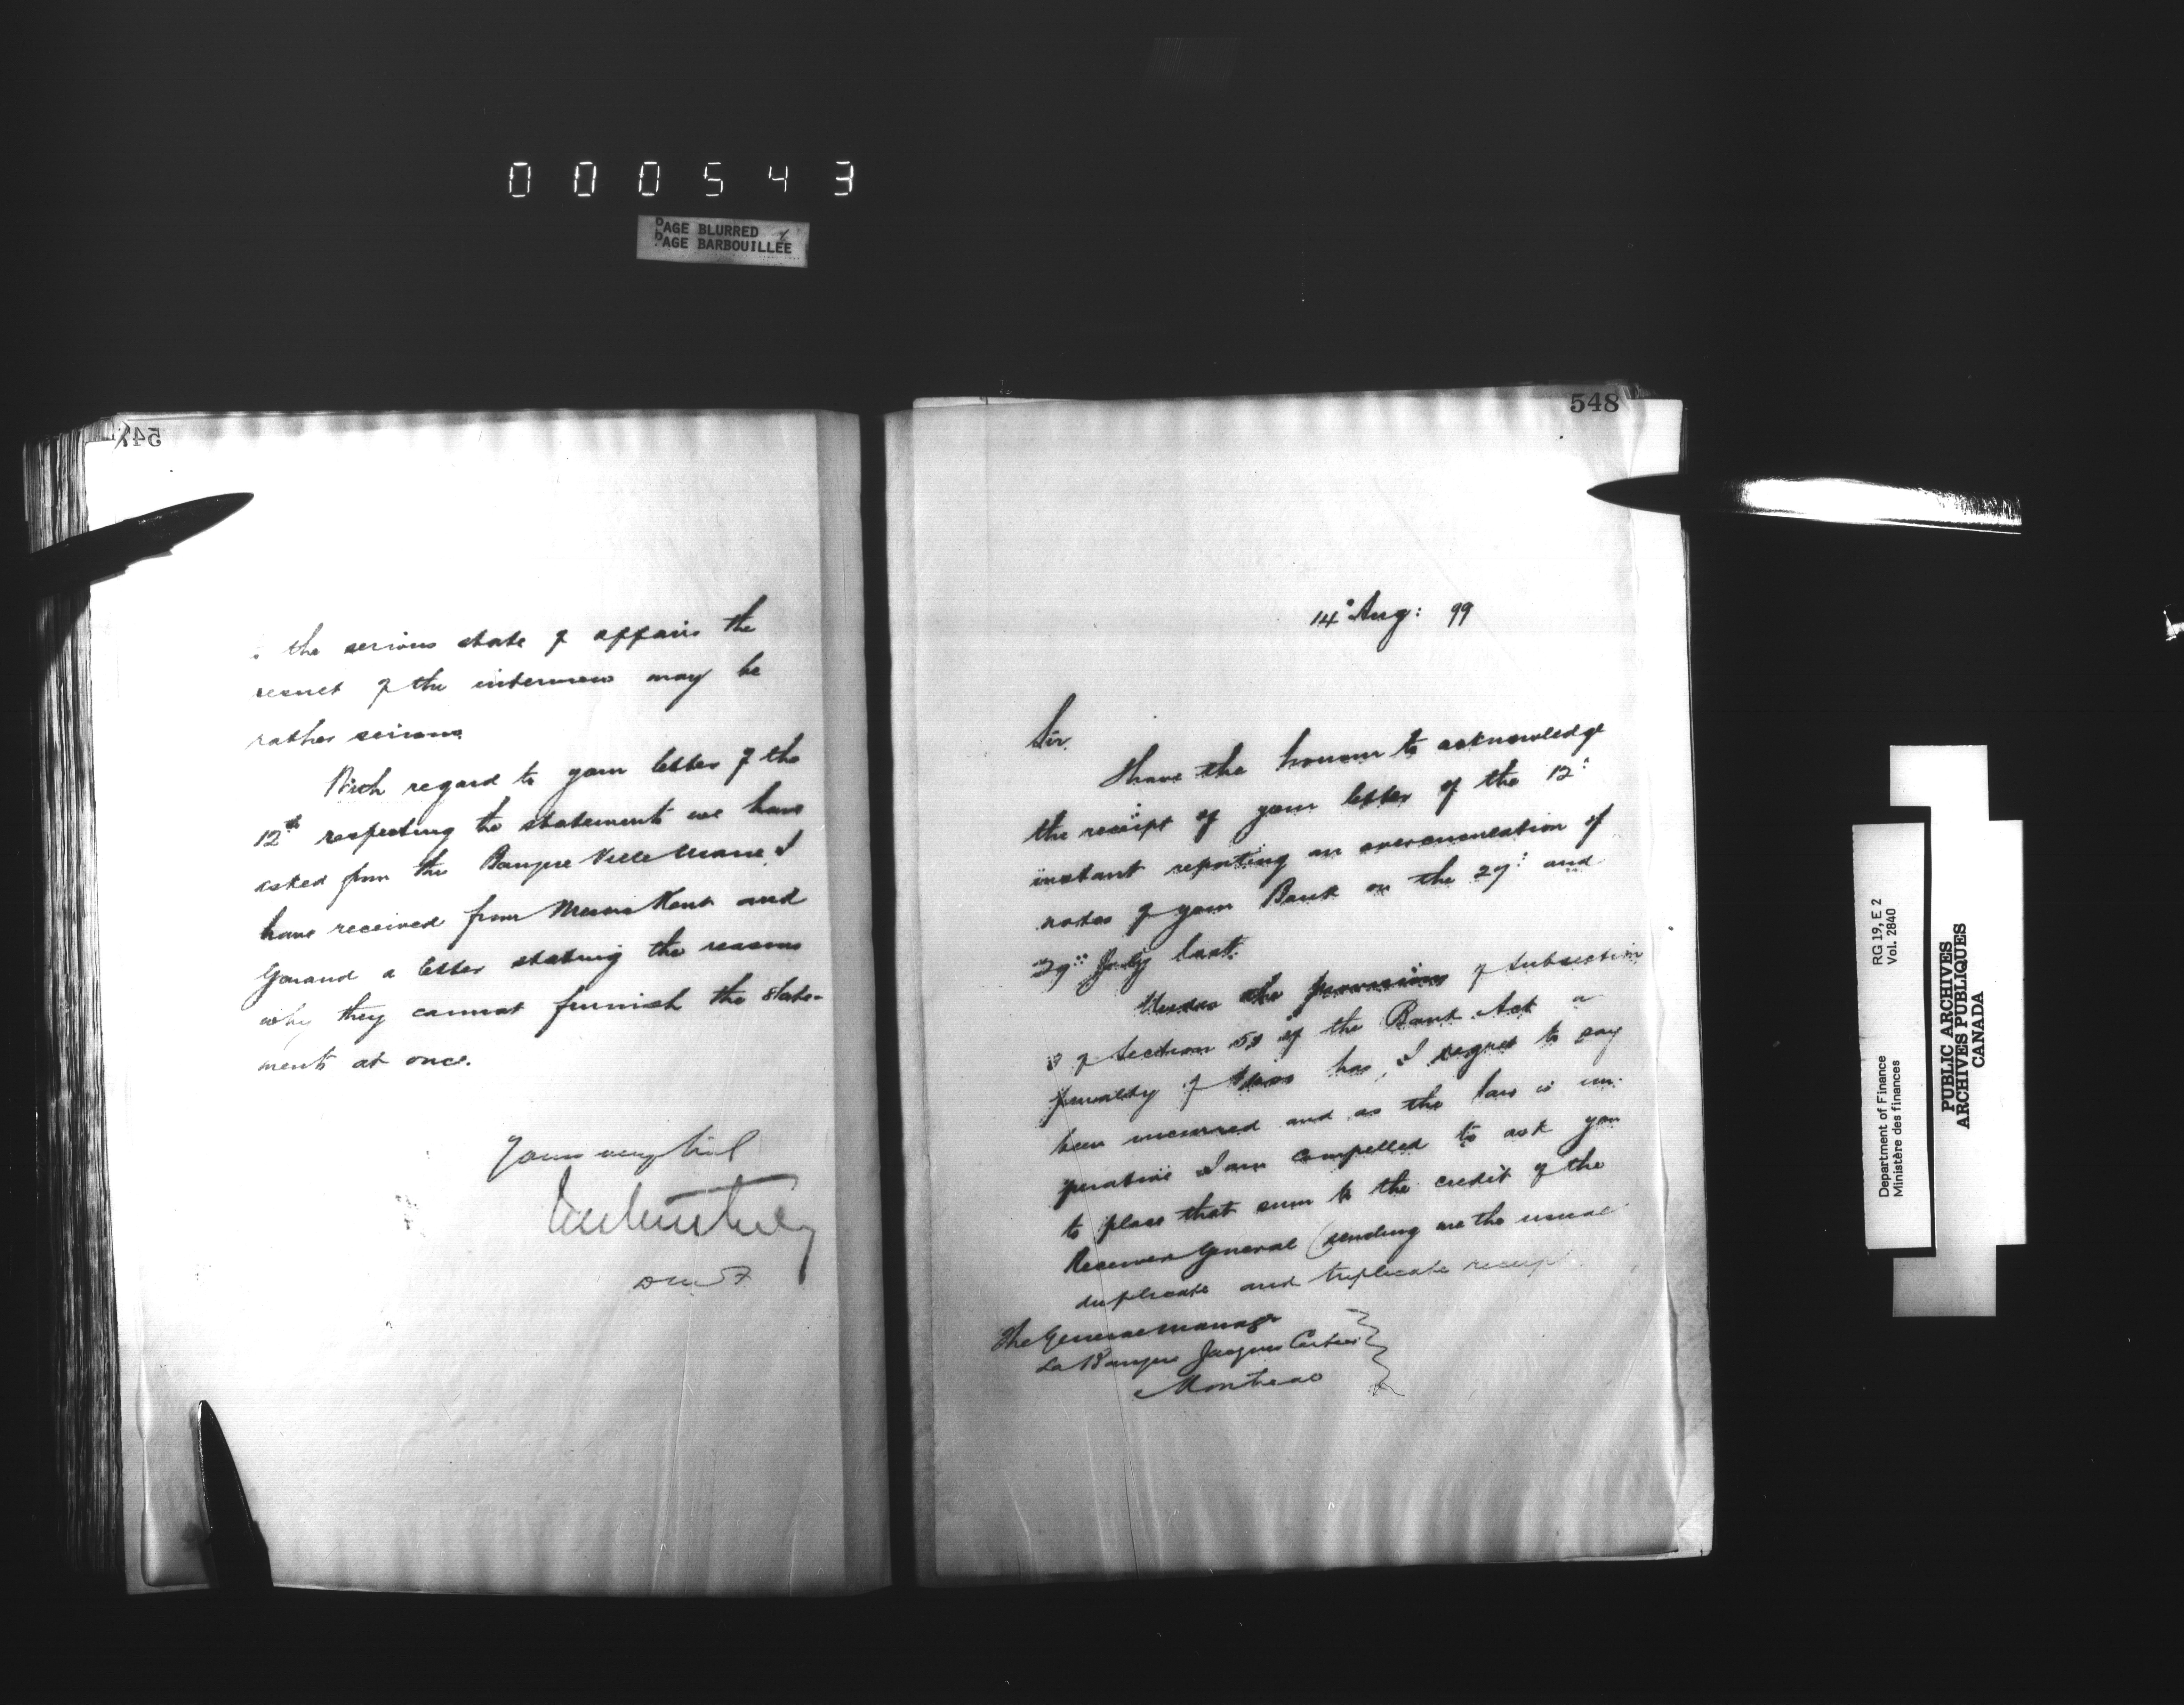 000543
PAGE BLURRED
PAGE BARBOUILLÉE
the serious state of affairs the
result of the interview may be
rather serious.
With regard to your letter of the
12th respecting the statements we have
asked from the Banque Ville Marie, I
have received from Messrs Kent and
Garand a letter stating the reasons
why they cannot furnish the state-
ments at once.
Yours very truly
DMF
548
14° Aug: 99
Sir.
I have the honour to acknowledge
the receipt of your letter of the 12:
instant reporting an overcirculation of
notes of your Bank on the 27: and
29: July last.
Under the provisions of Subsection
3 of Section 51 of the Bank Act a
penalty of has, I regret to say
been incurred and as the law is im-
perative I am compelled to ask you
to place that sum to the credit of the
Receiver General (sending me the usual
duplicate and triplicate receipt
The General Manager
La Banque Jacques Cartier
Montreal
RG 19, E 2
Vol. 2840
Department of Finance
Ministère des finances
PUBLIC ARCHIVES
ARCHIVES PUBLIQUES
CANADA